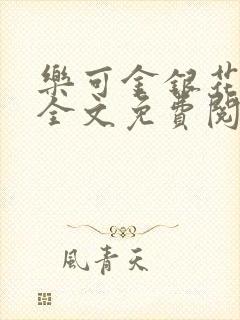 樂可金銀花
全文免費閱
風青天